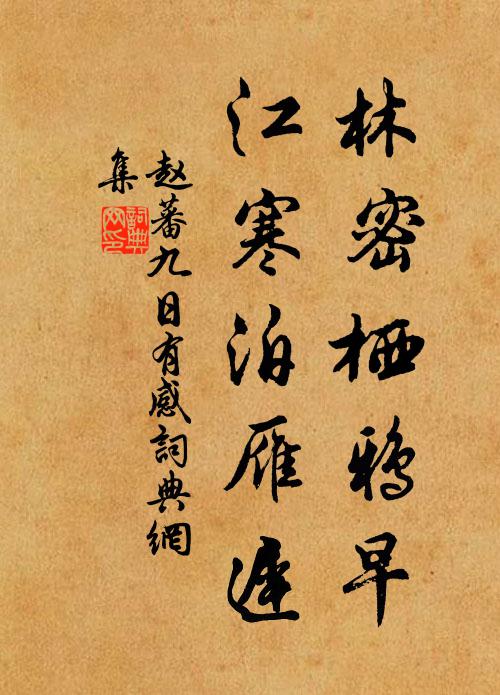 林密栖鸦早
江寒泊雁遲
赵蕃九日有感詞典網
集
詞典网印